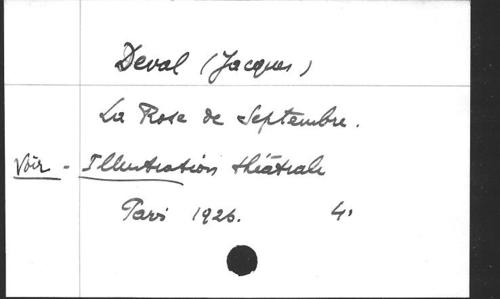 Deval (Jacques)
La Rose de Septembre.
Voir - Illustration théâtrale
Paris 1926. 4°